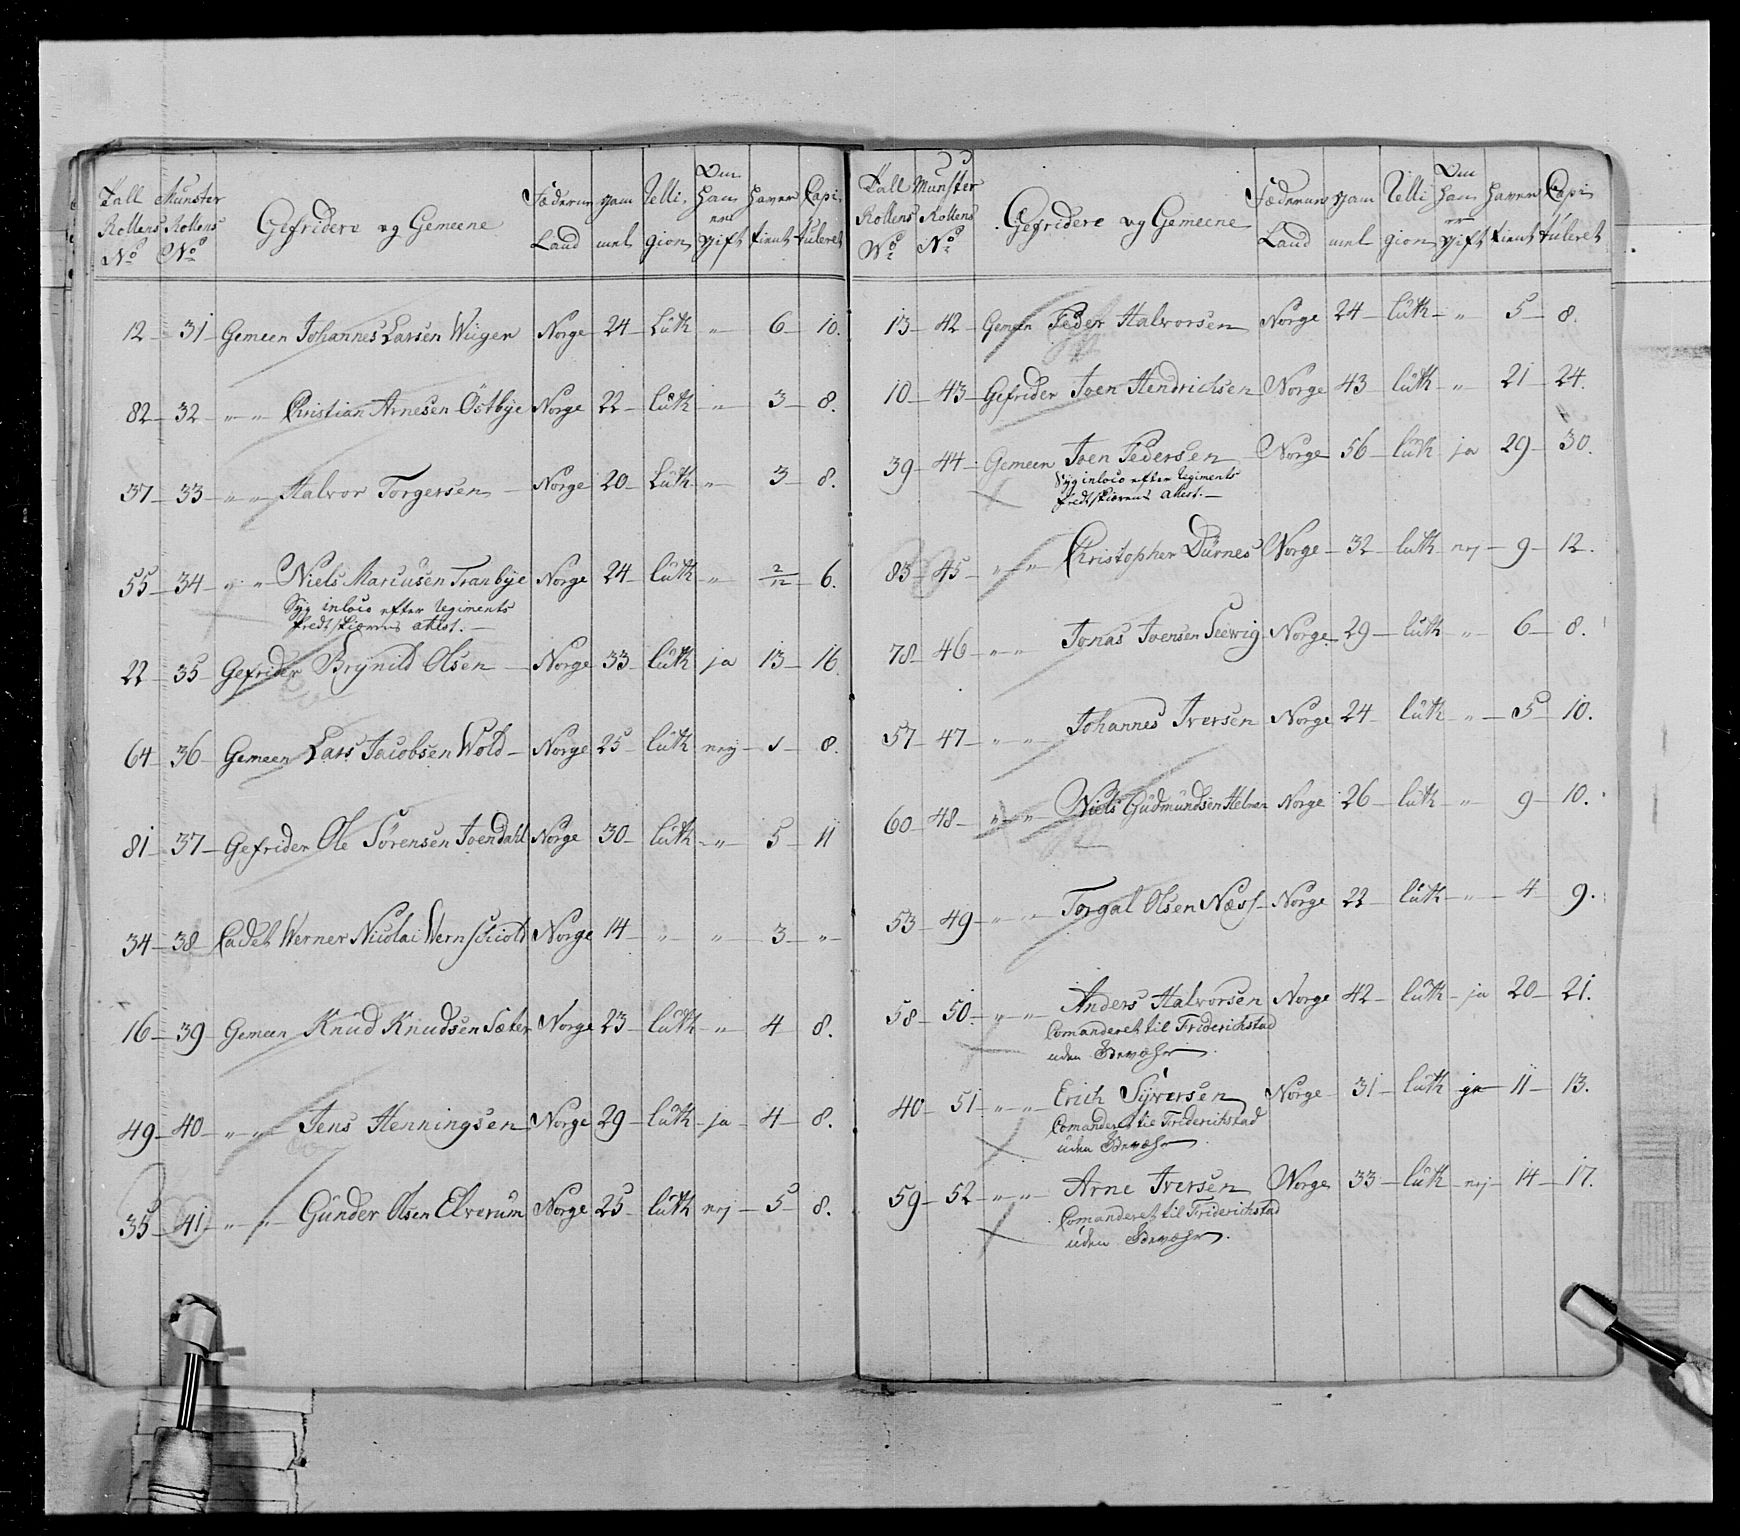 Tall Rollens No | Munster Rollens No | Gefridere og Gemeene | Fæderne Land | gam mel | Relli, gion | Om Han er gift | Haver tient | Capi tuleret
12 — 31 — Gemeen Johannes Larsen Wiiger | Norge | 24 — | Luth | " — | 6 — | 10.
82 — 32 — " " Christian Arnesen Östbye | Norge | 22 — | luth | " — | 3 — | 8.
37 — 33 — " " Halvor Torgersen — | Norge | 20 — | Luth | " — | 3 — | 8.
55 — 34 — " " Niels Marcusen Tranbye | Norge | 24 — | luth | " — | 2/12 — | 6.
Syg inloco efter Regiments
feldtskiærens attest. —
22 — 35 — Gefrider Brynild Olsen — | Norge | 33 — | luth | ja | 13 — | 16
64 — 36 — Gemeen Lars Jacobsen Wold — | Norge | 25 — | luth | nej — | 1 — | 8.
81 — 37 — Gefrider Ole Sörensen Joendahl | Norge | 30 — | luth — | " — | 5 — | 11
34 — 38 — Cadet Werner Nicolai Wernschiold | Norge | 14 — | " — | " — | 3 — | "
16 — 39 — Gemeen Knud Knudsen Sæter | Norge | 23 — | luth — | " — | 4 — | 8.
49 — 40 — " " Jens Henningsen | Norge | 29 — | luth — | ja — | 4 — | 8.
35 — 41 — " " Gunder Olsen Elverum | Norge | 25 — | luth | nej — | 5 — | 8.
Tall Rollens No | Munster Rollens No | Gefridere og Gemeene | Fæderne Land | gam mel | Relli gion | Om Han er gift | Haver tient | Capi tuleret
13 — 42 — Gemeen Peder Halvorsen | Norge | 24 — | luth — | " — | 5 — | 8.
10 — 43 — Gefrider Joen Hendrichsen | Norge | 43 | luth | " — | 21 — | 24.
39 — 44 — Gemeen Joen Pedersen | Norge | 56 — | luth | ja | 29 — | 30.
Syg inloco efter Regiments
feldtskiærens attest. —
83 — 45 — " " Christopher Dürnes | Norge — | 32 — | luth | nej — | 9 — | 12.
78 — 46 — " " Jonas Joensen Seewig | Norge | 29 — | luth | " — | 6 — | 8.
57 — 47 — " " Johannes Iversen | Norge | 24 — | luth | " — | 5 — | 10.
60 — 48 — " " Niels Gudmundsen | Norge | 26 — | luth — | " — | 9 — | 10.
53 — 49 — " " Torgal Olsen Næss — | Norge | 22 — | luth — | " — | 4 — | 9.
58 — 50 — " " Anders Halvorsen | Norge | 42 — | luth — | ja | 20 — | 21.
Comanderet til Friderichstad
uden Gevæhr
40 — 51 — " " Erich Syversen | Norge — | 31 — | luth | ja — | 11 — | 13.
Comanderet til Friderichstad
uden Gevæhr.
59 — 52 — " " Arne Iversen | Norge | 33 — | luth — | nej — | 14 — | 17.
Comanderet til Friderichstad
uden Gevæhr.